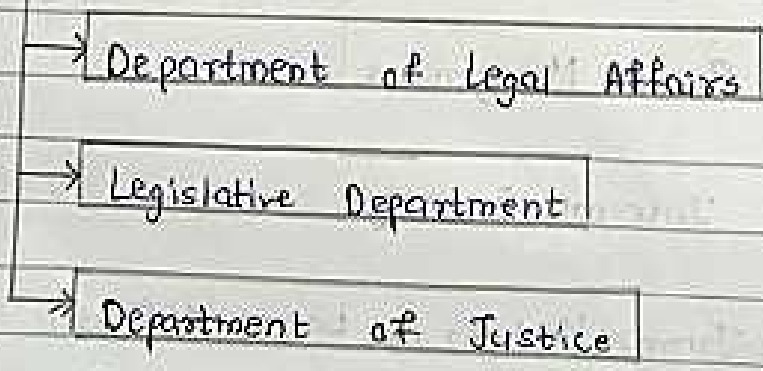 Department of Legal Affairs
Legislative Department
Department of Justice